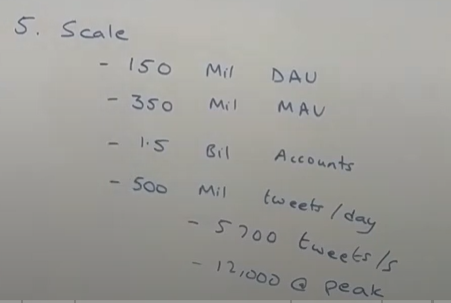 5. Scale
- 150 Mil DAU
- 350 Mil MAU
- 1.5 Bil Accounts
- 500 Mil tweets/day
- 5700 tweets/s
- 12,000 @ peak